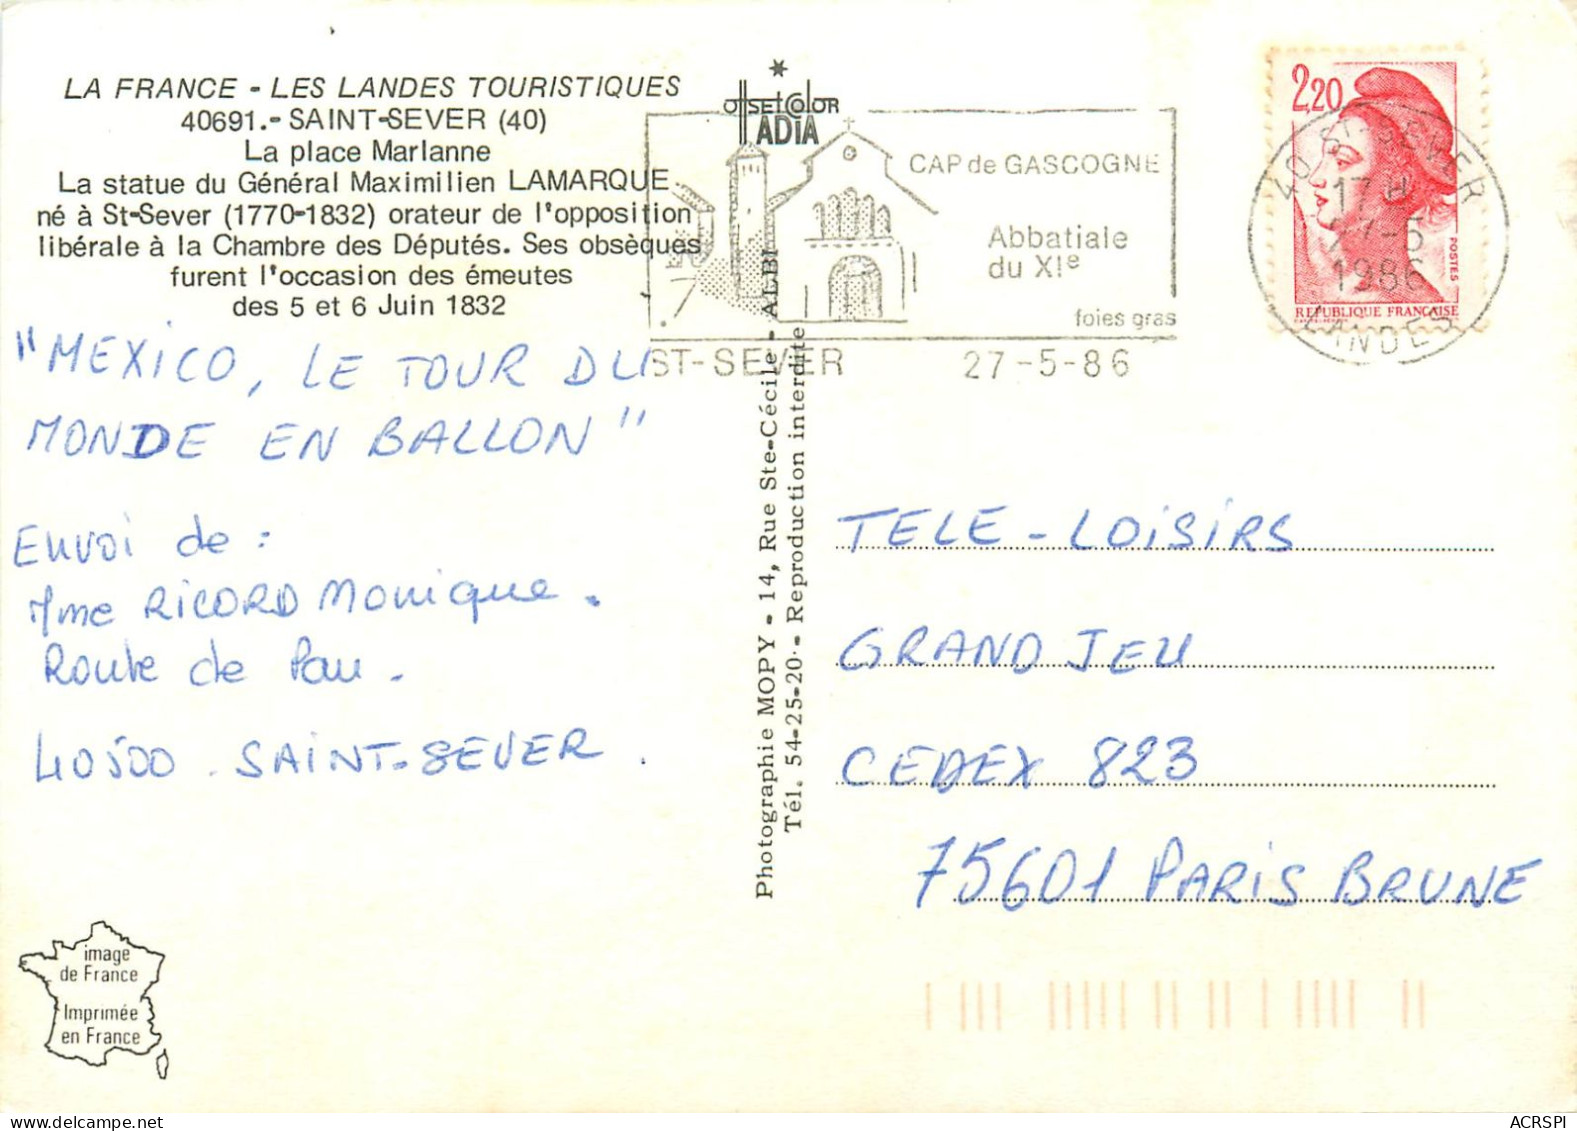 LA FRANCE - LES LANDES TOURISTIQUES
40691.- SAINT-SEVER (40)
La place Marianne
La statue du Général Maximilien LAMARQUE
né à St-Sever (1770-1832) orateur de l'opposition
libérale à la Chambre des Députés. Ses obsèques
furent l'occasion des émeutes
des 5 et 6 Juin 1832
"MEXICO, LE TOUR DU
MONDE EN BALLON"
Envoi de :
Mme RICORD Monique.
Route de Pau.
40500. SAINT-SEVER.
image
de France
Imprimée
en France
OffSETCOLOR
ADIA
CAP de GASCOGNE
Abbatiale
du XIe
foies gras
ST-SEVER 27-5-86
Photographie MOPY - 14, Rue Ste-Cécile - ALBI
Tél. 54-25-20 - Reproduction interdite
2,20
POSTES
REPUBLIQUE FRANÇAISE
40 ST-SEVER
17H
27-5
1986
LANDES
TELE-LOISIRS
GRAND JEU
CEDEX 823
75601 PARIS BRUNE
ACRSPI